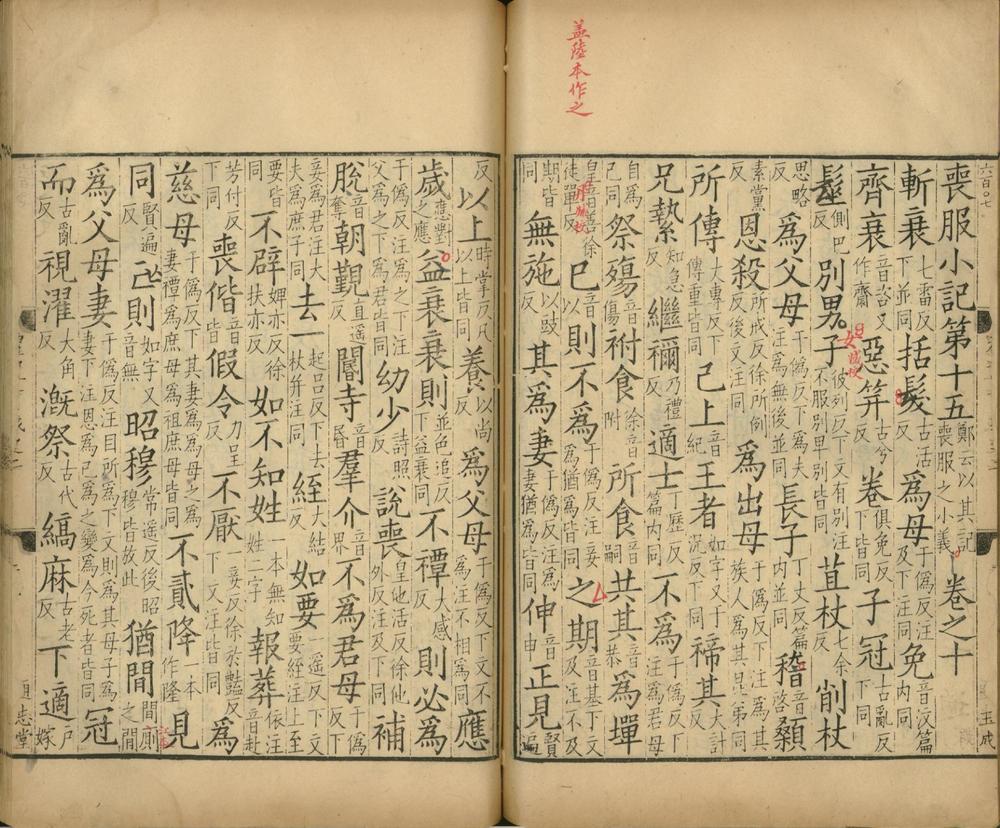 盖陸本作之
喪服小記第十五鄭云以其記喪服之小義卷之十
斬衰七雷反下並同括髮古活反爲母于僞反注及下注同免音汶篇内同
齊衰音咨又作齋惡笄古兮反卷俱免反下皆同子冠古亂反下同
髽側巴反別男子彼列反下文有別注不服別卑別皆同苴杖七余反削杖
思略反爲父母于僞反下爲夫注爲無後並同長子丁丈反篇内並同稽音啓顙
素黨反恩殺所戒反徐所例反後文注同爲出母于僞反下注爲其族人爲其昆弟同
所傳大專反下傳重皆同己上音紀王者如字又于況反下同禘其大計反
兄縶知急反繼禰乃禮反適士丁歷反篇内同不爲于僞反下注爲君母
己同祭殤音傷祔食音附所食音嗣共其音恭爲墠
皇音善徐徒單反已音以則不爲于僞反注妾爲猶爲皆同之期音基下文及注不及
期皆同無施以豉反其爲妻于僞反注爲妻猶爲皆同伸音申正見賢遍
反以上時掌反凡以上皆同養以尚反爲父母于僞反下文不爲注不相爲同應
歲應對之應益衰衰則並色追反下益衰同不禫大感反則必爲
于僞反注爲之下注父爲之下爲君皆同幼少詩照反說喪皇他活反徐他外反注及下同補
脫音奪朝覲直遥反閽寺音昏羣介音界不爲君母于僞反下
妾爲君注大夫爲庶子同去一起吕反下去杖并注同絰大結反如要一遥反下文要絰注上至
要皆同不辟婢亦反徐扶亦反如不知姓一本無知姓二字報葬依注音赴
芳付反下同喪偕音皆假令力呈反不厭一妾反徐於豔反下又注皆同爲
慈母于僞反下其妻爲爲母之爲妻禫爲庶母爲祖庶母皆同不貳降一本作隆見
同賢遍反亡則如字又音無昭穆常遥反後昭穆皆放此猶間間厠之間
爲父母妻于僞反注目所爲下文則爲其母子爲妻下注恩爲己爲之變爲今死者皆同冠
而古亂反視濯大角反漑祭古代反縞麻古老反下適户嫁
六百〇七
玉成
通志堂